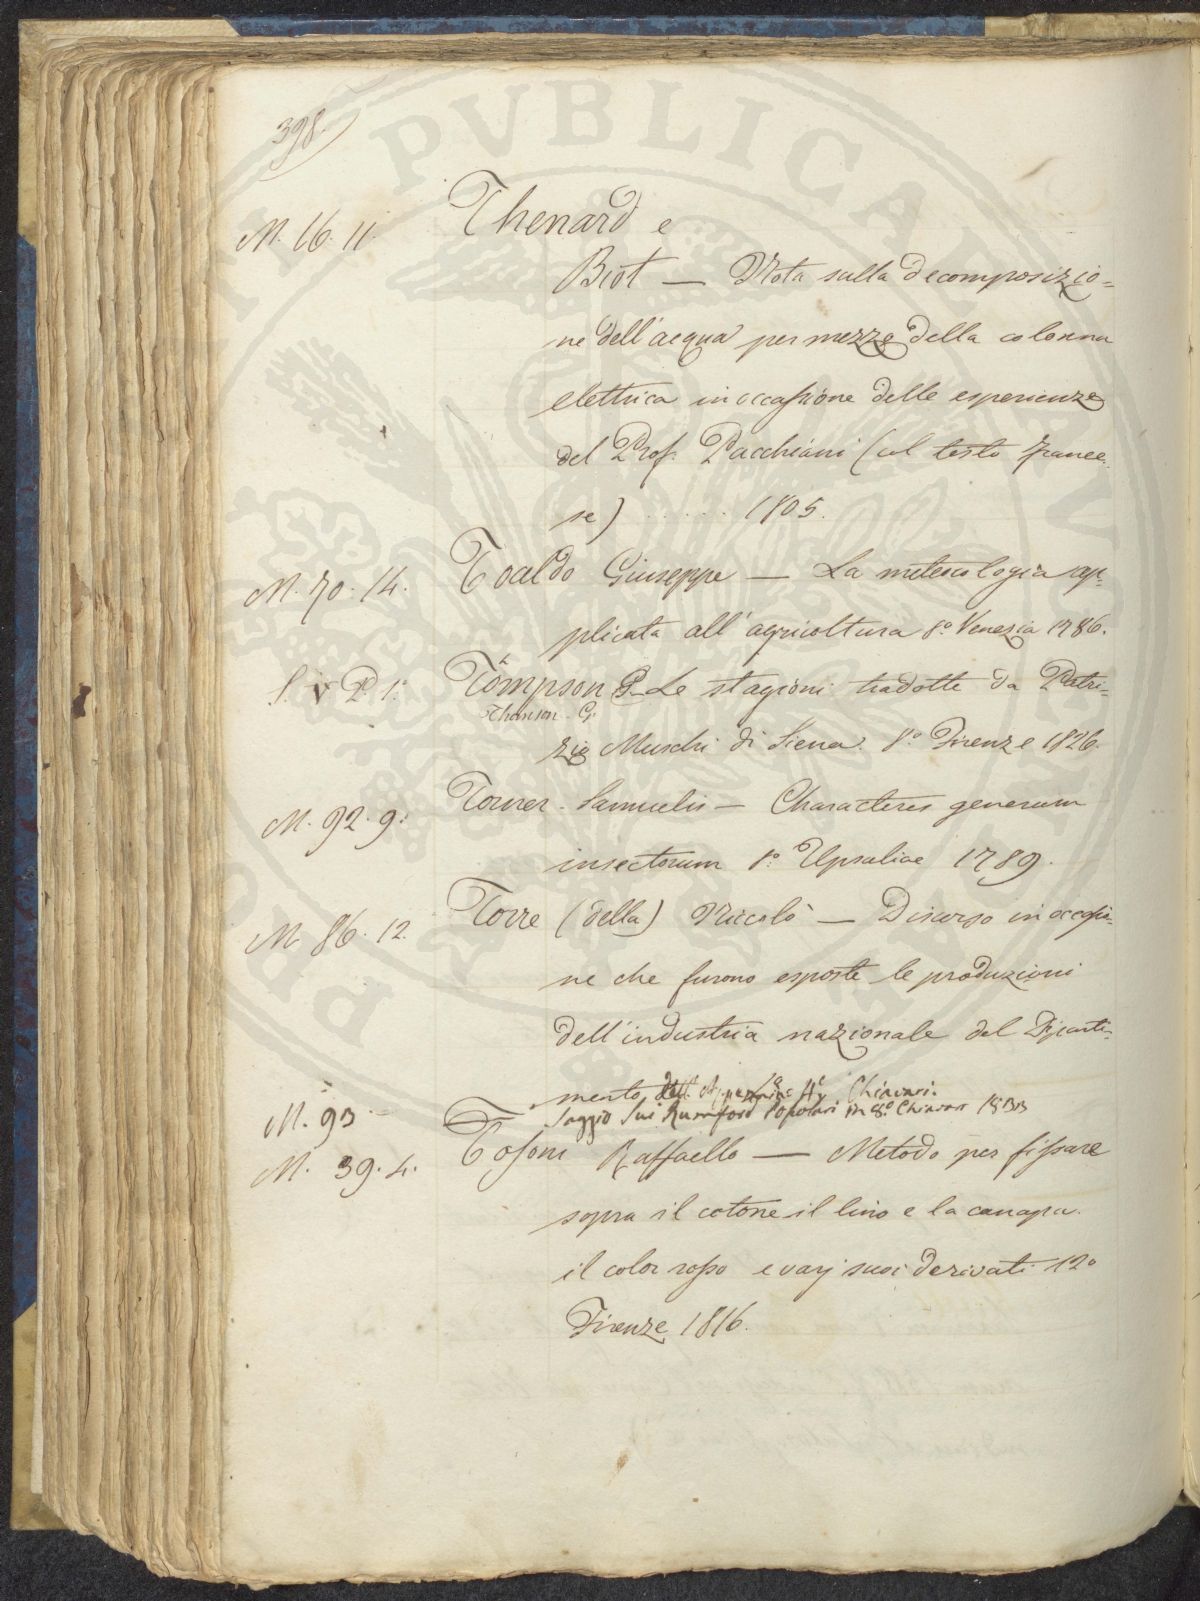 398.
M. 16. 11. Thenard e
Biot — Nota sulla decomposizio=
ne dell'acqua per mezzo della colonna
elettrica in occasione delle esperienze
del Prof. Pacchiani (col testo france=
se) ...... 1805.
M. 70. 14. Toaldo Giuseppe — La meteorologia ap=
plicata all'agricoltura 8.° Venezia 1786.
S. V P. 1. Tompson G. Le stagioni tradotte da Patri=
Thomson. G.
zio Muschi di Siena. 8.° Firenze 1826.
M. 92. 9. Torner. Samuelis — Characteres generum
insectorum 8.° Upsaliae 1789.
M. 86. 12. Torre (della) Niccolò — Discorso in occasio=
ne che furono esposte le produzioni
dell'industria nazionale del Diparti=
mento dell'Appennini Chiavari.
M. 93 — Saggio sui Rumford Popolari in 8.° Chiavari 1833
M. 39. 4. Tosoni Raffaello — Metodo per fissare
sopra il cotone il lino e la canapa
il color rosso e varj suoi derivati 12°
Firenze 1816.
PROPRIETÀ PVBLICAE